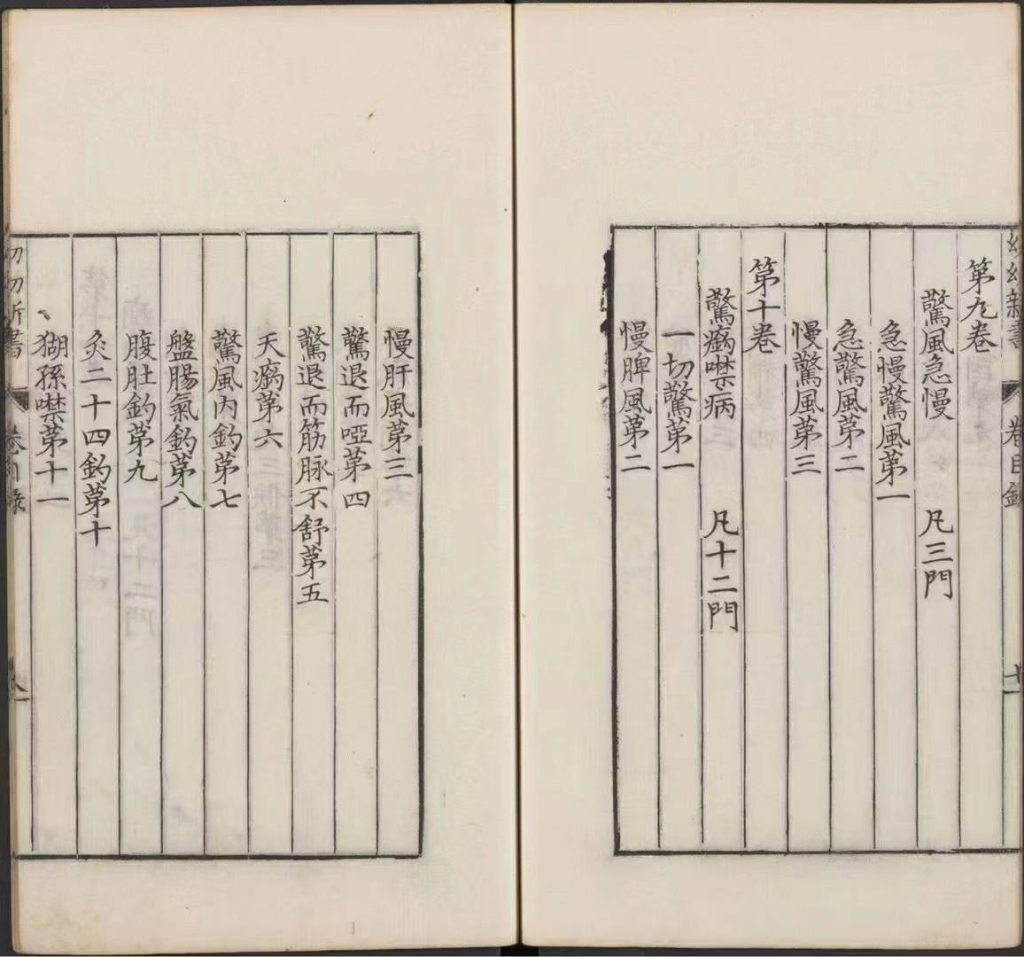 幼幼新書 卷目錄
第九卷
驚風急慢 凡三門
急慢驚風第一
急驚風第二
慢驚風第三
第十卷
驚癎噤病 凡十二門
一切驚第一
慢脾風第二
慢肝風第三
驚退而啞第四
驚退而筋脉不舒第五
天癎第六
驚風內釣第七
盤腸氣釣第八
腹肚釣第九
灸二十四釣第十
猢孫噤第十一
幼幼新書 卷目錄